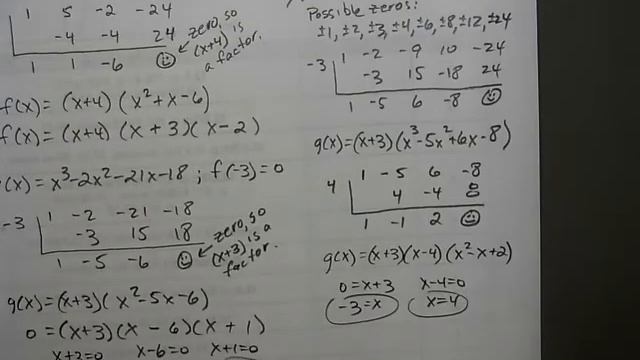 1 5 -2 -24
-4 -4 24
1 1 -6 ☺
← zero, so
(x+4) is
a factor.
f(x) = (x+4)(x²+x-6)
f(x) = (x+4)(x+3)(x-2)
(x) = x³-2x²-21x-18 ; f(-3)=0
-3 1 -2 -21 -18
-3 15 18
1 -5 -6 ☺
← zero, so
(x+3) is a
factor.
g(x) = (x+3)(x²-5x-6)
0 = (x+3)(x-6)(x+1)
x+2=0 x-6=0 x+1=0
Possible zeros:
±1, ±2, ±3, ±4, ±6, ±8, ±12, ±24
-3 1 -2 -9 10 -24
-3 15 -18 24
1 -5 6 -8 ☺
g(x)=(x+3)(x³-5x²+6x-8)
4 1 -5 6 -8
4 -4 8
1 -1 2 ☺
g(x)=(x+3)(x-4)(x²-x+2)
0=x+3 x-4=0
-3=x x=4